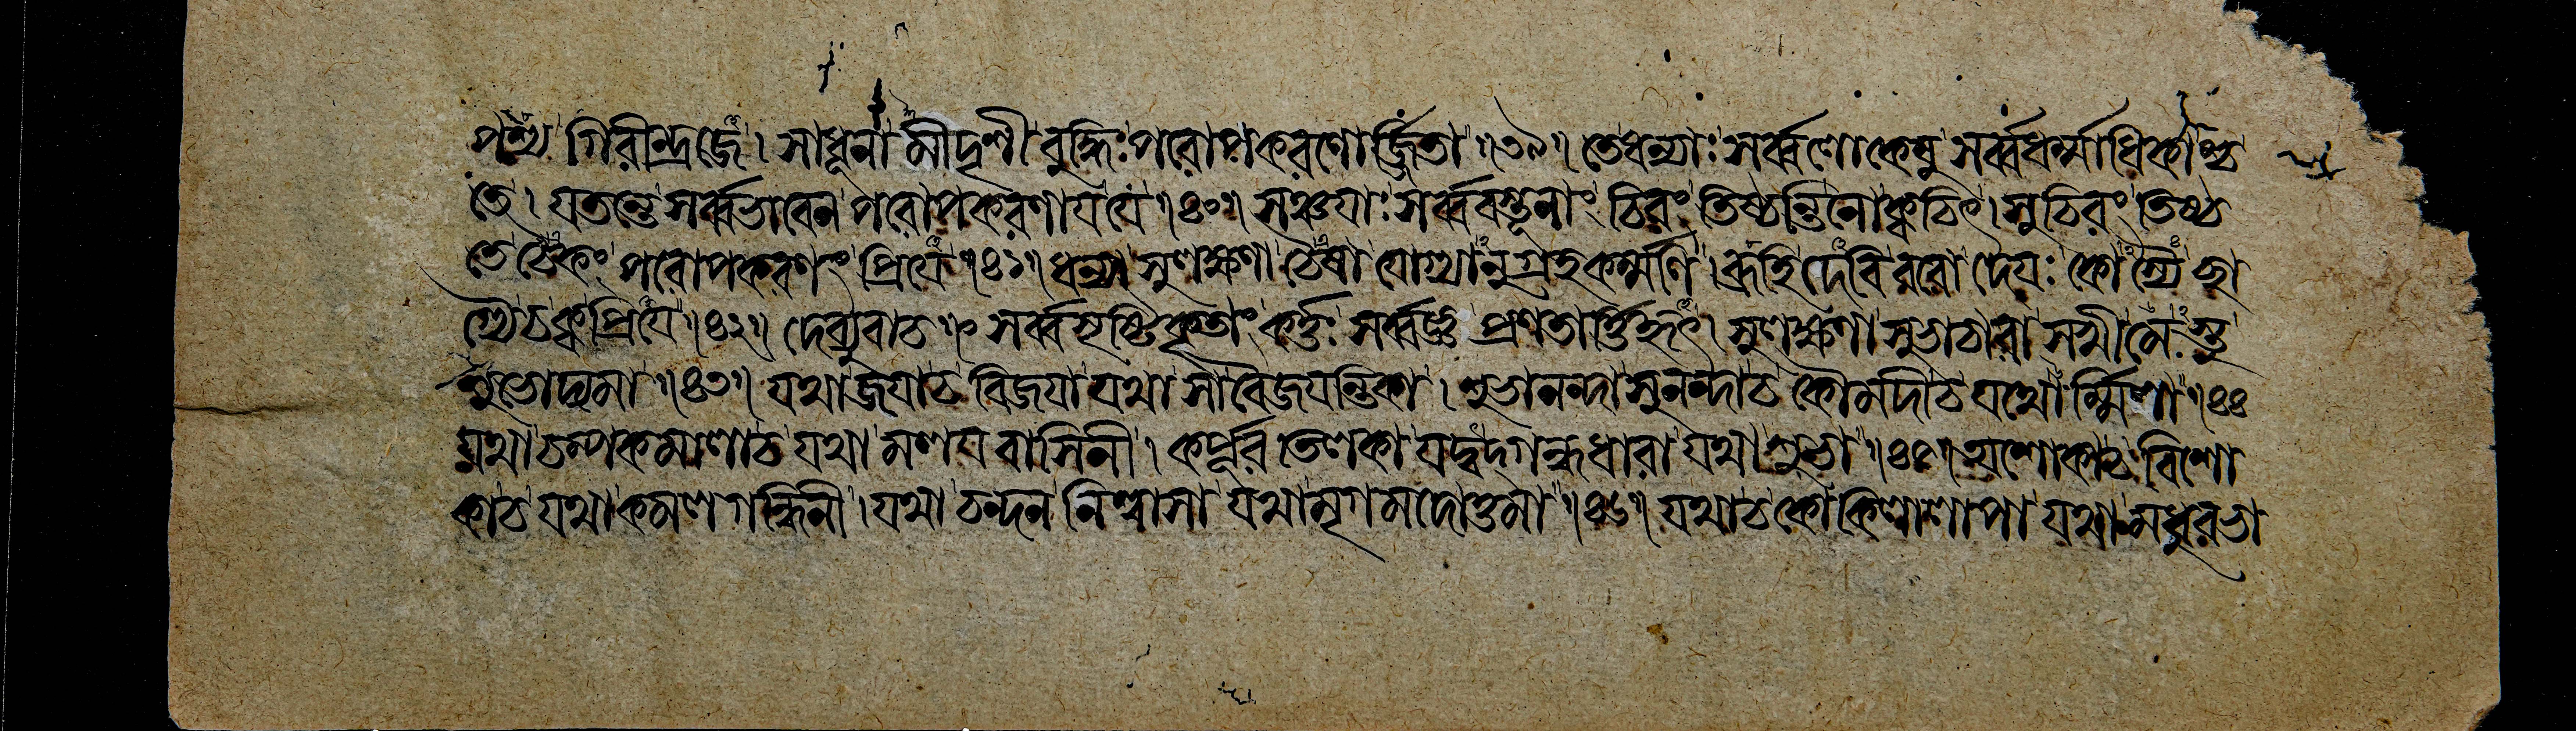 পশ্য গিরীন্দ্রজে। সাধূনামীদৃশী বুদ্ধিঃ পরোপকরণোর্জ্জিতা॥৩৯॥ তে ধন্যাঃ সর্ব্বলোকেষু সর্ব্বধর্ম্মাধিকাশ্চ
তে। যতন্তে সর্ব্বভাবেন পরোপকরণায় যে॥৪০॥ সঞ্চয়াঃ সর্ব্ববস্তূনাং চিরং তিষ্ঠন্তি নো ক্বচিৎ। সুচিরং তিষ্ঠ
তে চৈকং পরোপকরণং প্রিয়ে॥৪১॥ ধন্যা সুলক্ষণা চৈষা যোগ্যানুগ্রহকর্ম্মণি। ব্রূহি দেবি বরো দেয়ঃ কোঽস্যৈ ছা
গ্যৈ চ ক্ব প্রিয়ে॥৪২॥ দেব্যুবাচ॥ সর্ব্বসৃষ্টিকৃতাং কর্ত্তঃ সর্ব্বজ্ঞ প্রণতার্ত্তিহৃৎ। সুলক্ষণা সুভাচারা সখী মেঽস্তু
শুভোদ্যমা॥৪৩॥ যথা জয়া চ বিজয়া যথা সা বৈজয়ন্তিকা। শুভানন্দা সুনন্দা চ কৌমদী চ যথোর্ম্মিলা॥৪৪
যথা চম্পকমালা চ যথা মলয়বাসিনী। কর্পূরতিলকা যদ্বদ্গন্ধধারা যথা শুভা॥৪৫॥ অশোকা চ বিশো
কা চ যথা কমলগন্ধিনী। যথা চন্দননিশ্বাসা যথা মৃগমদোত্তমা॥৪৬॥ যথা চ কোকিলালাপা যথা মধুরভা